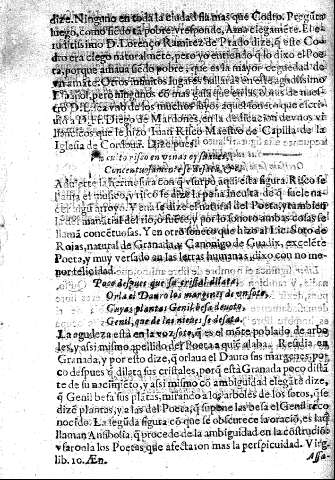 dize. Ninguno en toda la ciudad ama mas que Codro. Pregũta
luego, como siẽdo tã pobre, y responde, Ama elegamẽte. El e-
ruditissimo D. Lorenço Ramirez de Prado dize, q̃ este Co-
dro era ciego naturalmẽte, pero yo entiendo q̃ lo dixo el Poe-
ta, porque amaua siẽdo pobre, que es la mayor ceguedad de
vn amãte. Otros infinitos lugares hallarã en este agudissimo
Español, pero ningunos cõ mas gala que en las obras de nues-
tro D. Luis, y vno de los muchos suyos aquel soneto que escri-
uio a D. F. Diego de Mardones, en la dedicacion de vnos vi-
llancicos que le hizo Iuan Risco Maestro de Capilla de la
Iglesia de Cordoua. Dize pues.
culto risco en venas
Concentuosamente se desata, &c.
Aduierte la hermosura con q̃ vsurpò aqui esta figura. Risco se
llama el musico, y risco se dize la peña inculta de q̃ suele na-
cer algũ arroyo. Vena se dize el natural del Poeta, y tambien
la del manãtial del rio, ò fuẽte, y por lo sonoro ambas cosas se
llamã concẽtuosas. Y en otro soneto que hizo al Lic. Soto de
Rojas, natural de Granada, y Canonigo de Guadix, excelẽte
Poeta, y muy versado en las letras humanas, dixo con no me-
nor felicidad.
Poco despues que su cristal dilata,
Orla el Dauro los margenes de vn soto,
Cuyas plantas Genil besa deuoto,
Genil, que de las nieues se desata.
La agudeza està en la voz soto, q̃ es el mõte poblado de arbo-
les, y assi mismo apellido del Poeta a quiẽ alaba. Residia en
Granada, y por esto dize, q̃ orlaua el Dauro sus margenes, po-
co despues q̃ dilata sus cristales, porq̃ està Granada poco distã
te de su nacimiẽto, y assi mismo cõ ambiguidad elegãte dize,
q̃ Genil besa sus platas, mirando a los arboles de los sotos, q̃ se
dize plantas, y a las del Poeta, q̃ supone las besa el Genil reco
nocido. La segũda figura cõ que se obscurece la oracion, es la q̃
llaman Anfibolia, q̃ procede de la ambiguidad en la costruciõ
vsarõla los Poetas que afectaron mas la perspicuidad. Virg.
lib. 10. Æn.
Assa-